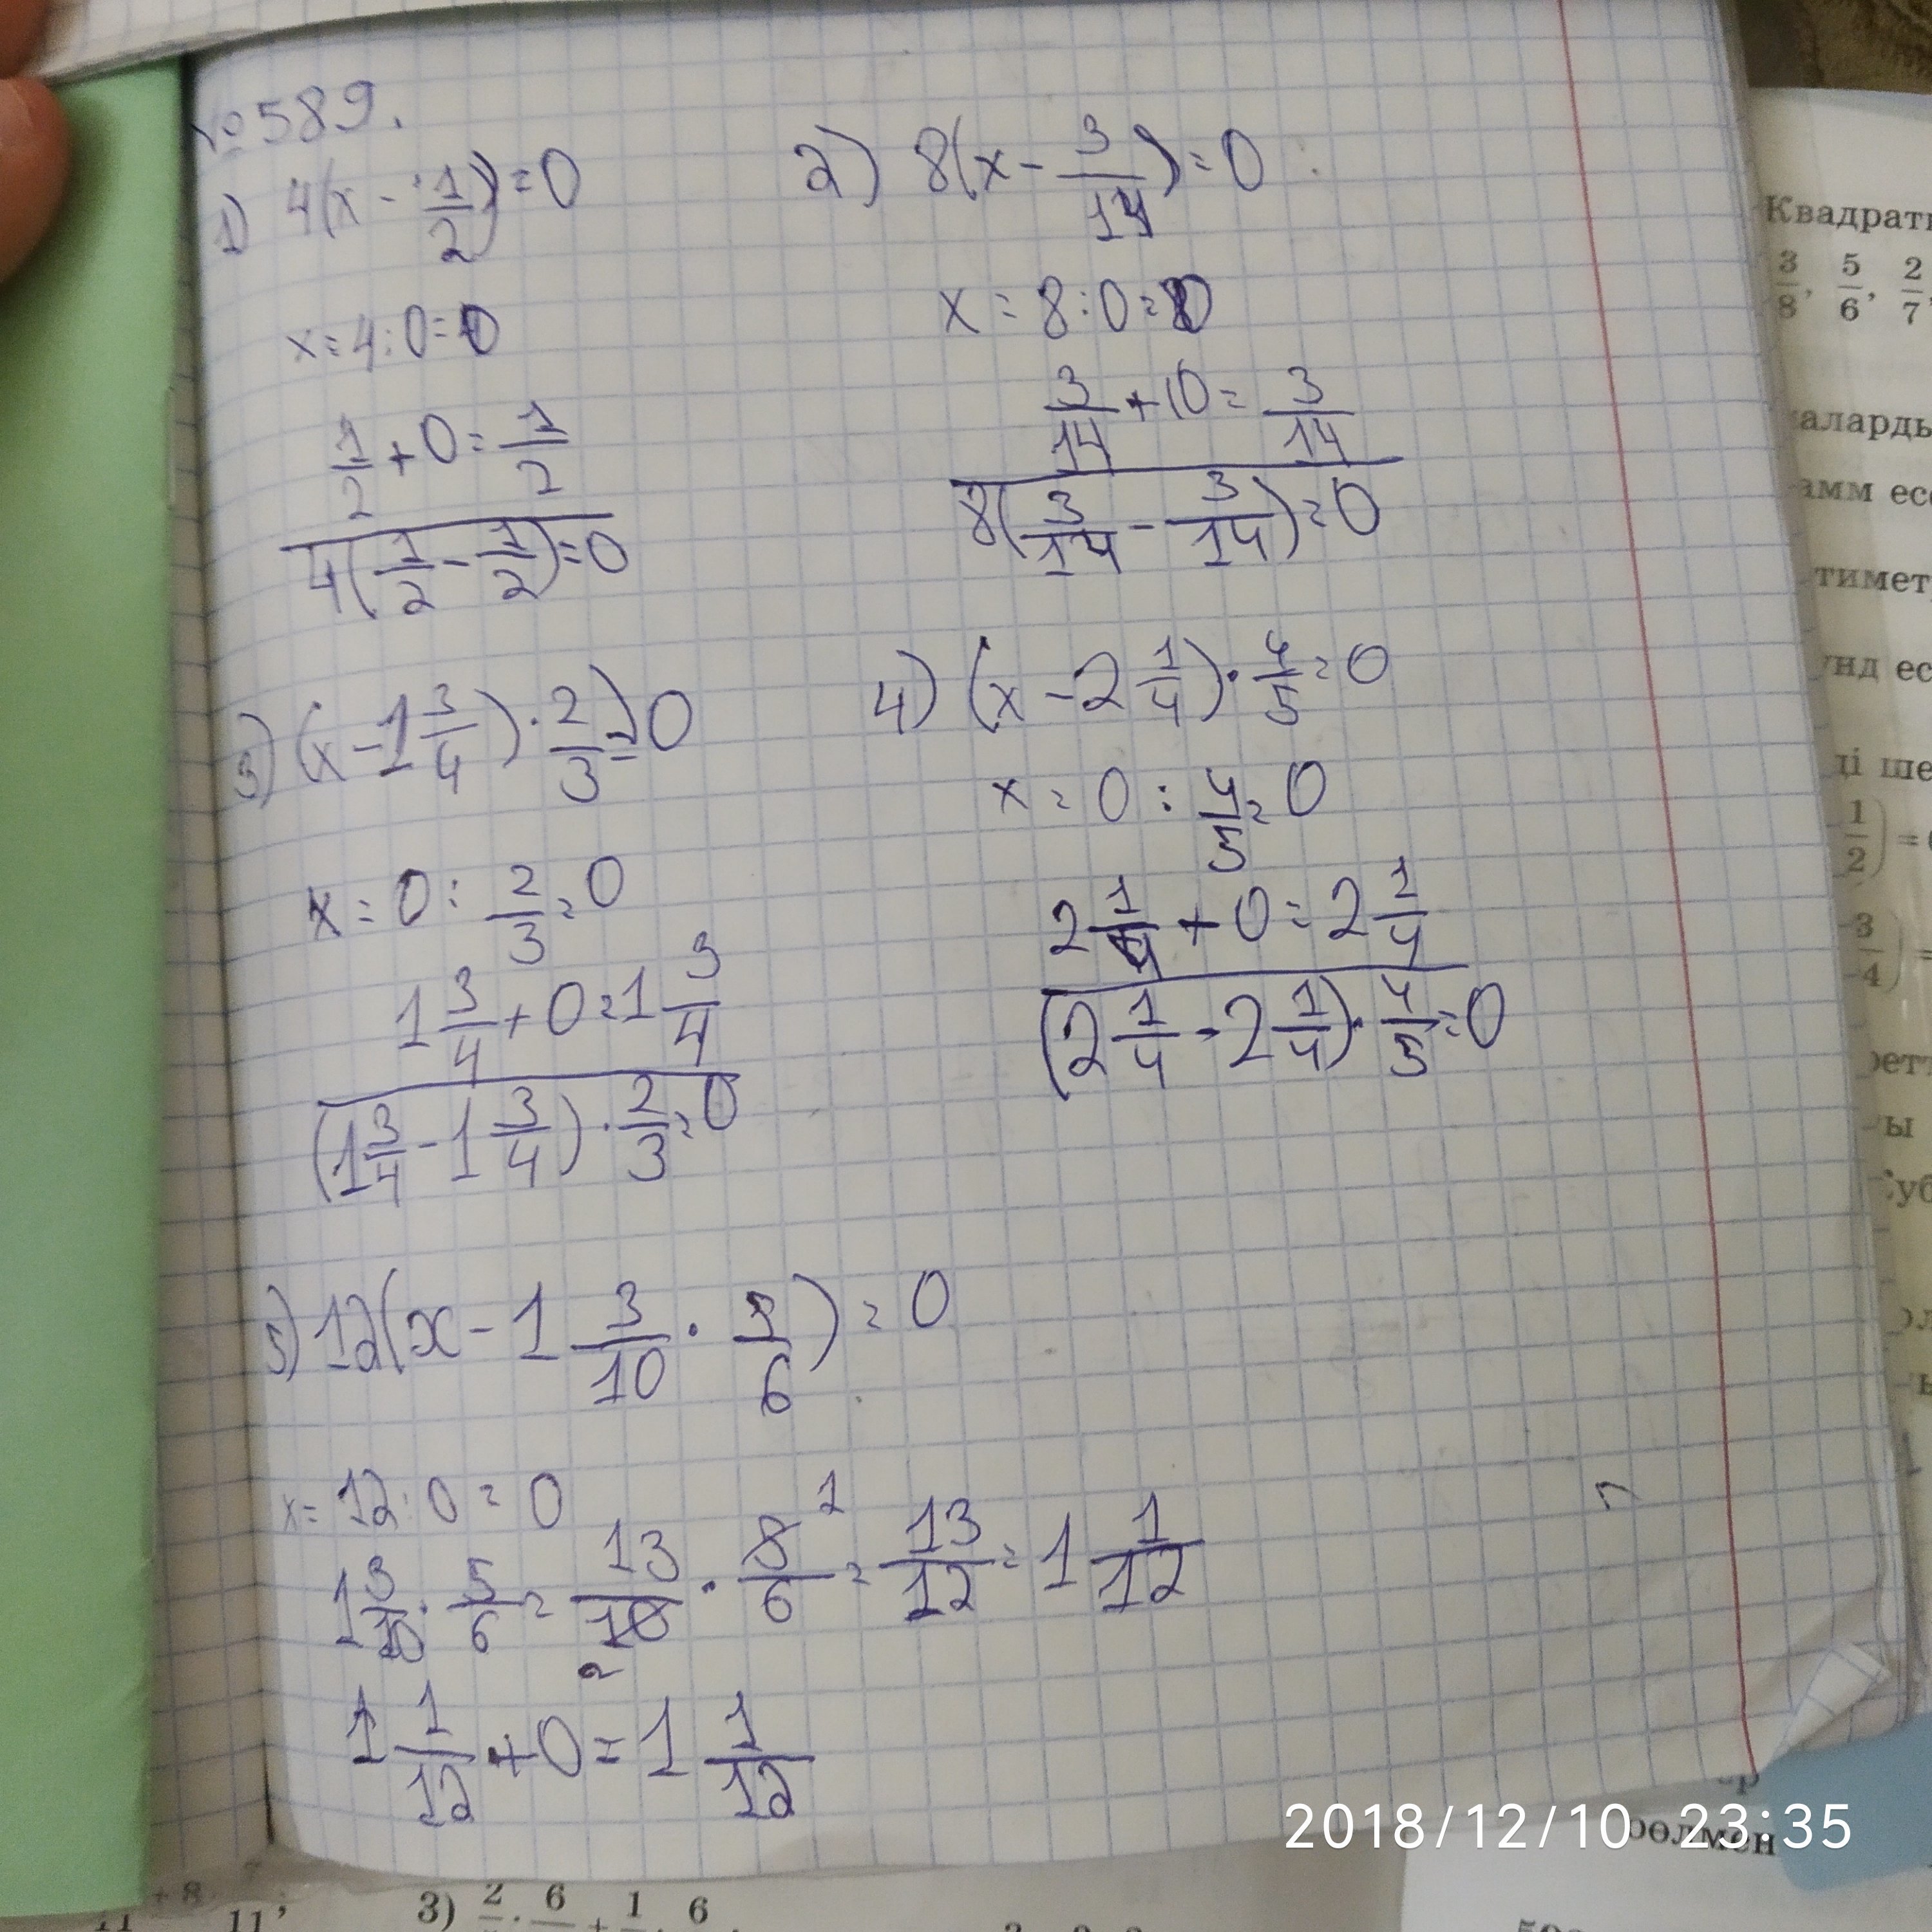 №589.
1) 4(x - 1/2) = 0
x = 4 : 0 = 0
1/2 + 0 = 1/2
4(1/2 - 1/2) = 0
2) 8(x - 3/14) = 0
x = 8 : 0 = 0
3/14 + 0 = 3/14
8(3/14 - 3/14) = 0
3) (x - 1 3/4) · 2/3 = 0
x = 0 : 2/3 = 0
1 3/4 + 0 = 1 3/4
(1 3/4 - 1 3/4) · 2/3 = 0
4) (x - 2 1/4) · 4/5 = 0
x = 0 : 4/5 = 0
2 1/4 + 0 = 2 1/4
(2 1/4 - 2 1/4) · 4/5 = 0
5) 12(x - 1 3/10 · 5/6) = 0
x = 12 : 0 = 0
1 3/10 · 5/6 = 13/10 2 · 5/6 1 = 13/12 = 1 1/12
1 1/12 + 0 = 1 1/12
Квадрат
3/8, 5/6, 2/7,
аларды
амм есе
тимет
унд ес
ді ше
1/2) =
3/4) =
ретт
ры
2018/12/10 23:35
бөлмен
+ 8
11 ;
3) 2 · 6 + 1 · 6